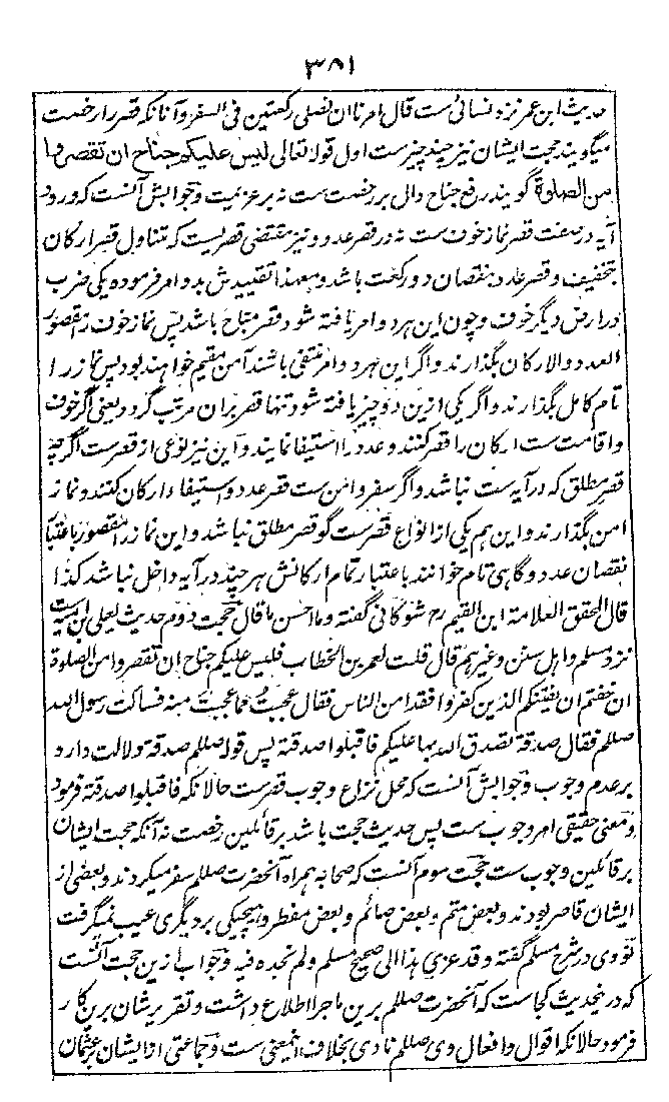 ۳۸۱
حدیث ابن عمر نزد نسائی ست قال امرنا ان نصلی رکعتین فی السفر و آنانکه قصر را رخصت
میگویند حجت ایشان نیز چند چیز ست اول قوله تعالی لیس علیکم جناح ان تقصروا
من الصلوة گویند رفع جناح دال بر رخصت ست نه بر عزیمت و جوابش آنست که ورود
آیه در صفت قصر نماز خوف ست نه در قصر عدد و نیز مقتضی قصریست که متناول قصر ارکان
بتخفیف و قصر عدد بنقصان دو رکعت باشد و معهذا تقییدش بدو امر فرموده یکی ضرب
در ارض دیگر خوف و چون این هر دو امر یافته شود قصر مباح باشد پس نماز خوف را مقصور
العدد و الارکان بگذارند و اگر این هر دو امر منتفی باشند آمن مقیم خواهند بود پس نماز را
تام کامل بگذارند و اگر یکی ازین دو چیز یافته شود تنها قصر بران مرتب گردد یعنی اگر خوف
و اقامت ست ارکان را قصر کنند و عدد را استیفا نمایند و این نیز نوعی از قصر ست اگرچه
قصر مطلق که در آیه ست نباشد و اگر سفر و امن ست قصر عدد و استیفاء ارکان کنند و نماز
امن بگذارند و این هم یکی از انواع قصر ست گو قصر مطلق نباشد و این نماز را مقصور باعتبار
نقصان عدد و گاهی تام خوانند باعتبار تمام ارکانش هر چند در آیه داخل نباشد کذا
قال المحقق العلامة ابن القیم رح شوکانی گفته و ما احسن ما قال حجت دوم حدیث یعلی بن امیه ست
نزد مسلم و اهل سنن و غیرهم قال قلت لعمر بن الخطاب فلیس علیکم جناح ان تقصروا من الصلوة
ان خفتم ان یفتنکم الذین کفروا فقد امن الناس فقال عجبت مما عجبت منه فسألت رسول الله
صللم فقال صدقة تصدق الله بها علیکم فاقبلوا صدقته پس قوله صللم صدقة دلالت دارد
بر عدم وجوب و جوابش آنست که محل نزاع وجوب قصر ست حالانکه فاقبلوا صدقته فرمود
و معنی حقیقی امر وجوب ست پس حدیث حجت باشد بر قائلین رخصت نه آنکه حجت ایشان
بر قائلین وجوب ست حجت سوم آنست که صحابه همراه آنحضرت صللم سفر میکردند و بعضی از
ایشان قاصر بودند و بعض متم و بعض صائم و بعض مفطر و هیچیکی بر دیگری عیب نمیگرفت
نووی در شرح مسلم گفته و قد عزی هذا الی صحیح مسلم ولم نجده فیه و جواب ازین حجت آنست
که درینحدیث کجاست که آنحضرت صللم برین ماجرا اطلاع داشت و تقریر شان برین کار
فرمود حالانکه اقوال و افعال وی صللم نادی بخلاف اینمعنی ست و جماعتی از ایشان بر عثمان